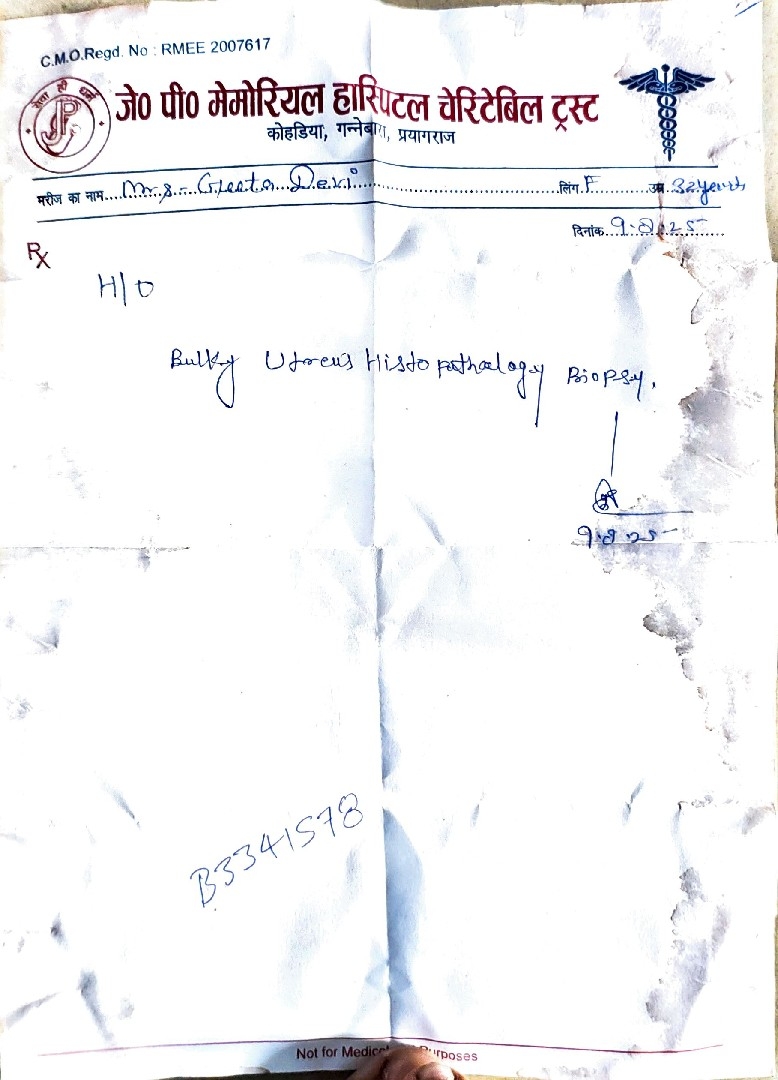 C.M.O.Regd. No : RMEE 2007617
सेवा ही धर्म
JP
जे0 पी0 मेमोरियल हास्पिटल चेरिटेबिल ट्रस्ट
कोहडिया, गन्नेबारा, प्रयागराज
मरीज का नाम....Mrs- Geeta Devi........लिंग.F........उम्र.32years
दिनांक.9.8.25.......
Rx
H/O
Bulky Uterus Histopathology Biopsy.
9.8.25
B3341578
Not for Medico Purposes